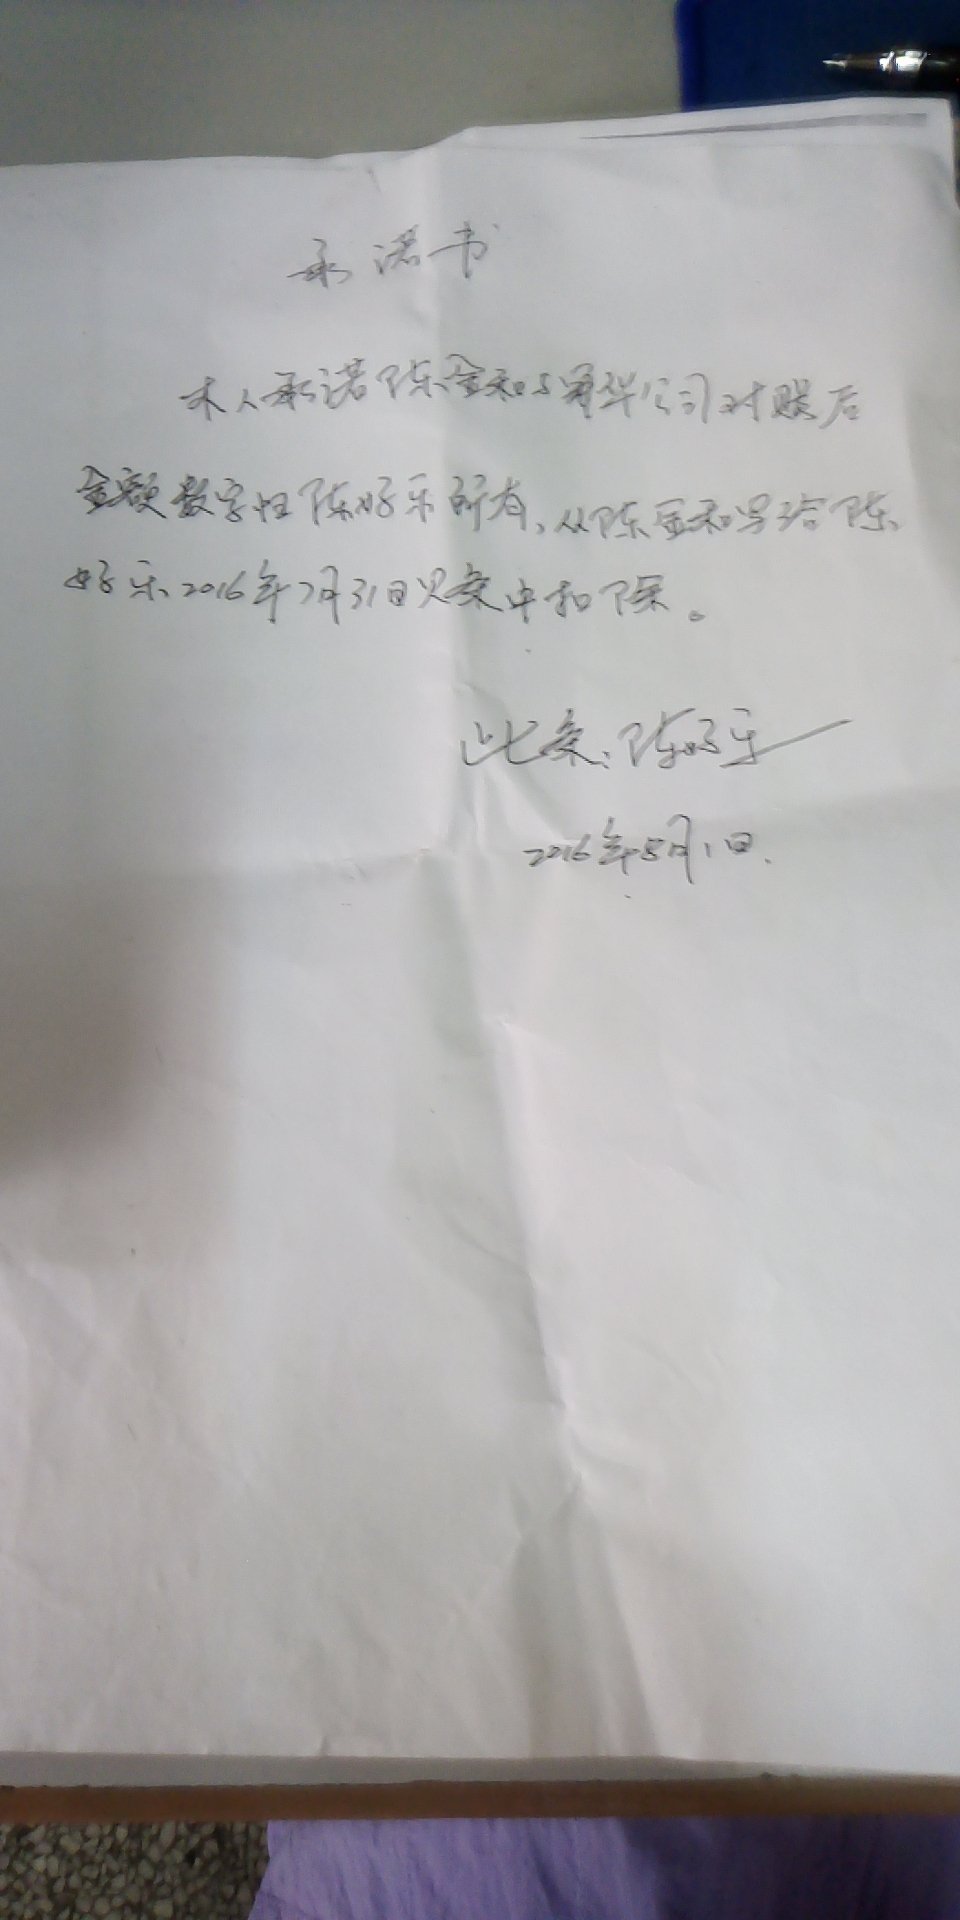 承诺书
本人承诺陈金和与舜华公司对账后
金额数字归陈好乐所有，从陈金和写给陈
好乐2016年7月31日欠条中扣除。
此条：陈好乐
2016年8月1日